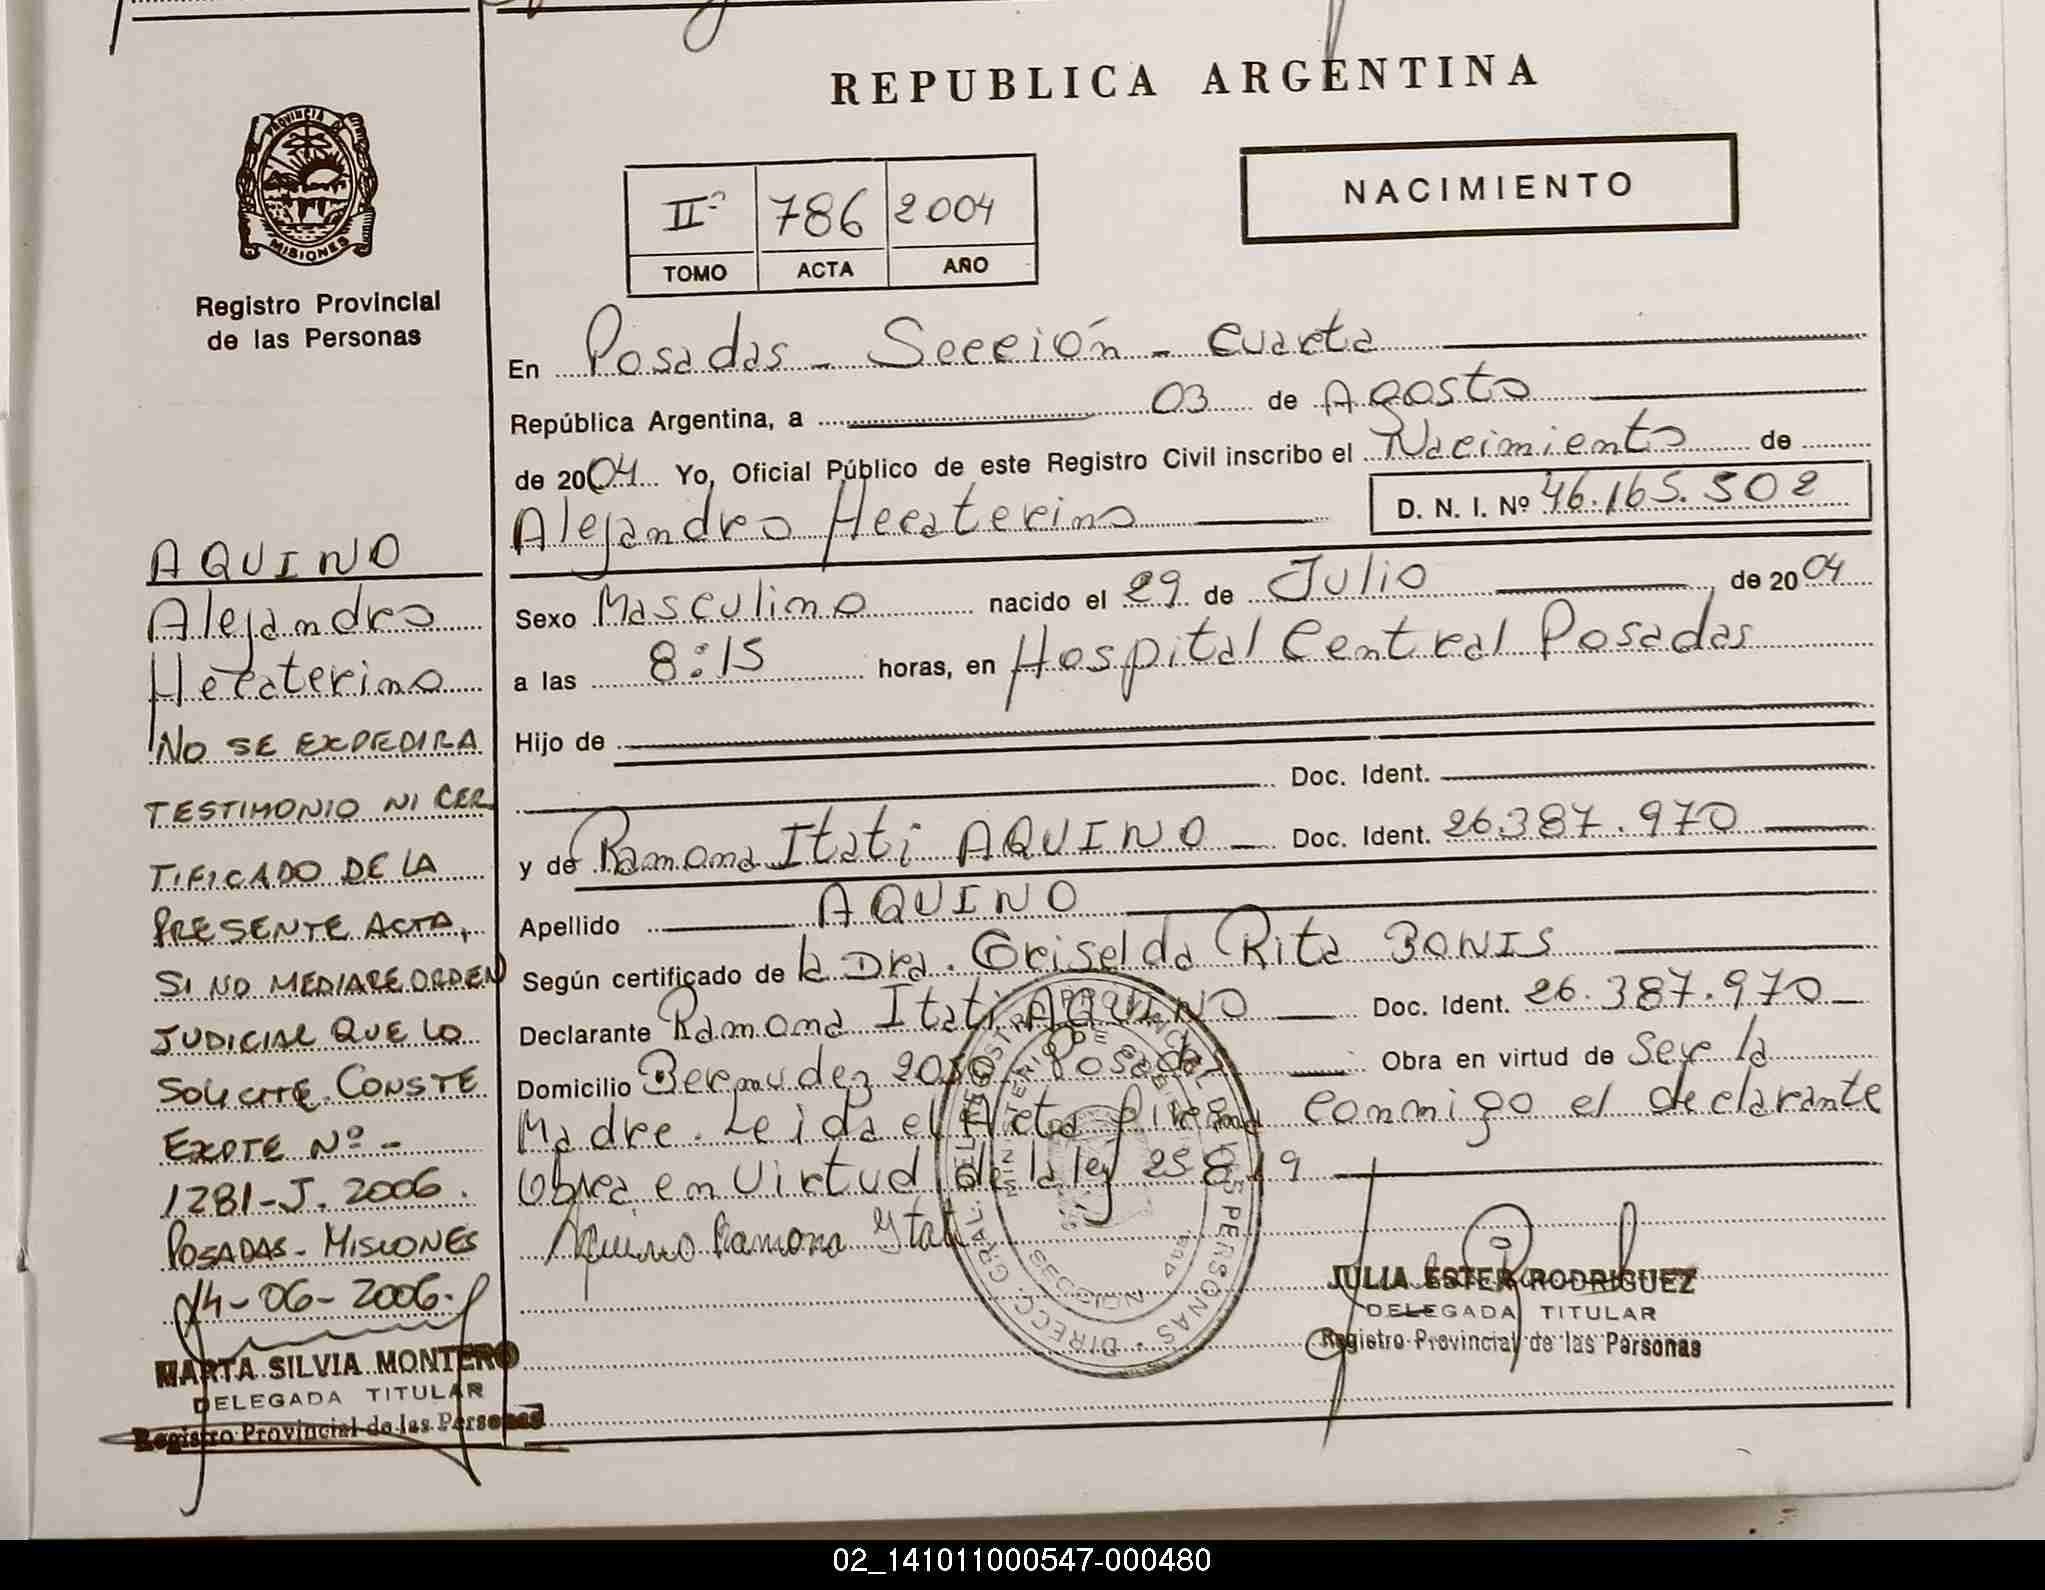 REPUBLICA ARGENTINA
PROVINCIA D
MISIONES
Registro Provincial
de las Personas
NACIMIENTO
IIº 786 2004
TOMO ACTA AÑO
En Posadas - Sección - Cuarta
República Argentina, a 03 de Agosto
de 2004 Yo, Oficial Público de este Registro Civil inscribo el Nacimiento de
Alejandro Hecaterino D. N. I. Nº 46.165.502
Sexo Masculino nacido el 29 de Julio de 2004
a las 8:15 horas, en Hospital Central Posadas
Hijo de
Doc. Ident.
y de Ramona Itati AQUINO Doc. Ident. 26.387.970
Apellido AQUINO
Según certificado de la Dra. Griselda Rita BONIS
Declarante Ramona Itati AQUINO Doc. Ident. 26.387.970
Domicilio Bermudez 2050 Posadas Obra en virtud de Ser la
Madre. Leida el Acta firma conmigo el declarante
Obra en Virtud de la ley 25819
Aquino Ramona Ytati
JULIA ESTER RODRIGUEZ
DELEGADA TITULAR
Registro Provincial de las Personas
AQUINO
Alejandro
Hecaterino
NO SE EXPEDIRA
TESTIMONIO NI CER
TIFICADO DE LA
PRESENTE ACTA,
SI NO MEDIARE ORDEN
JUDICIAL QUE LO
SOLICITE. CONSTE
EXPTE Nº -
1281-J. 2006.
POSADAS - MISIONES
14-06-2006.
MARTA SILVIA MONTERO
DELEGADA TITULAR
Registro Provincial de las Personas
02_141011000547-000480